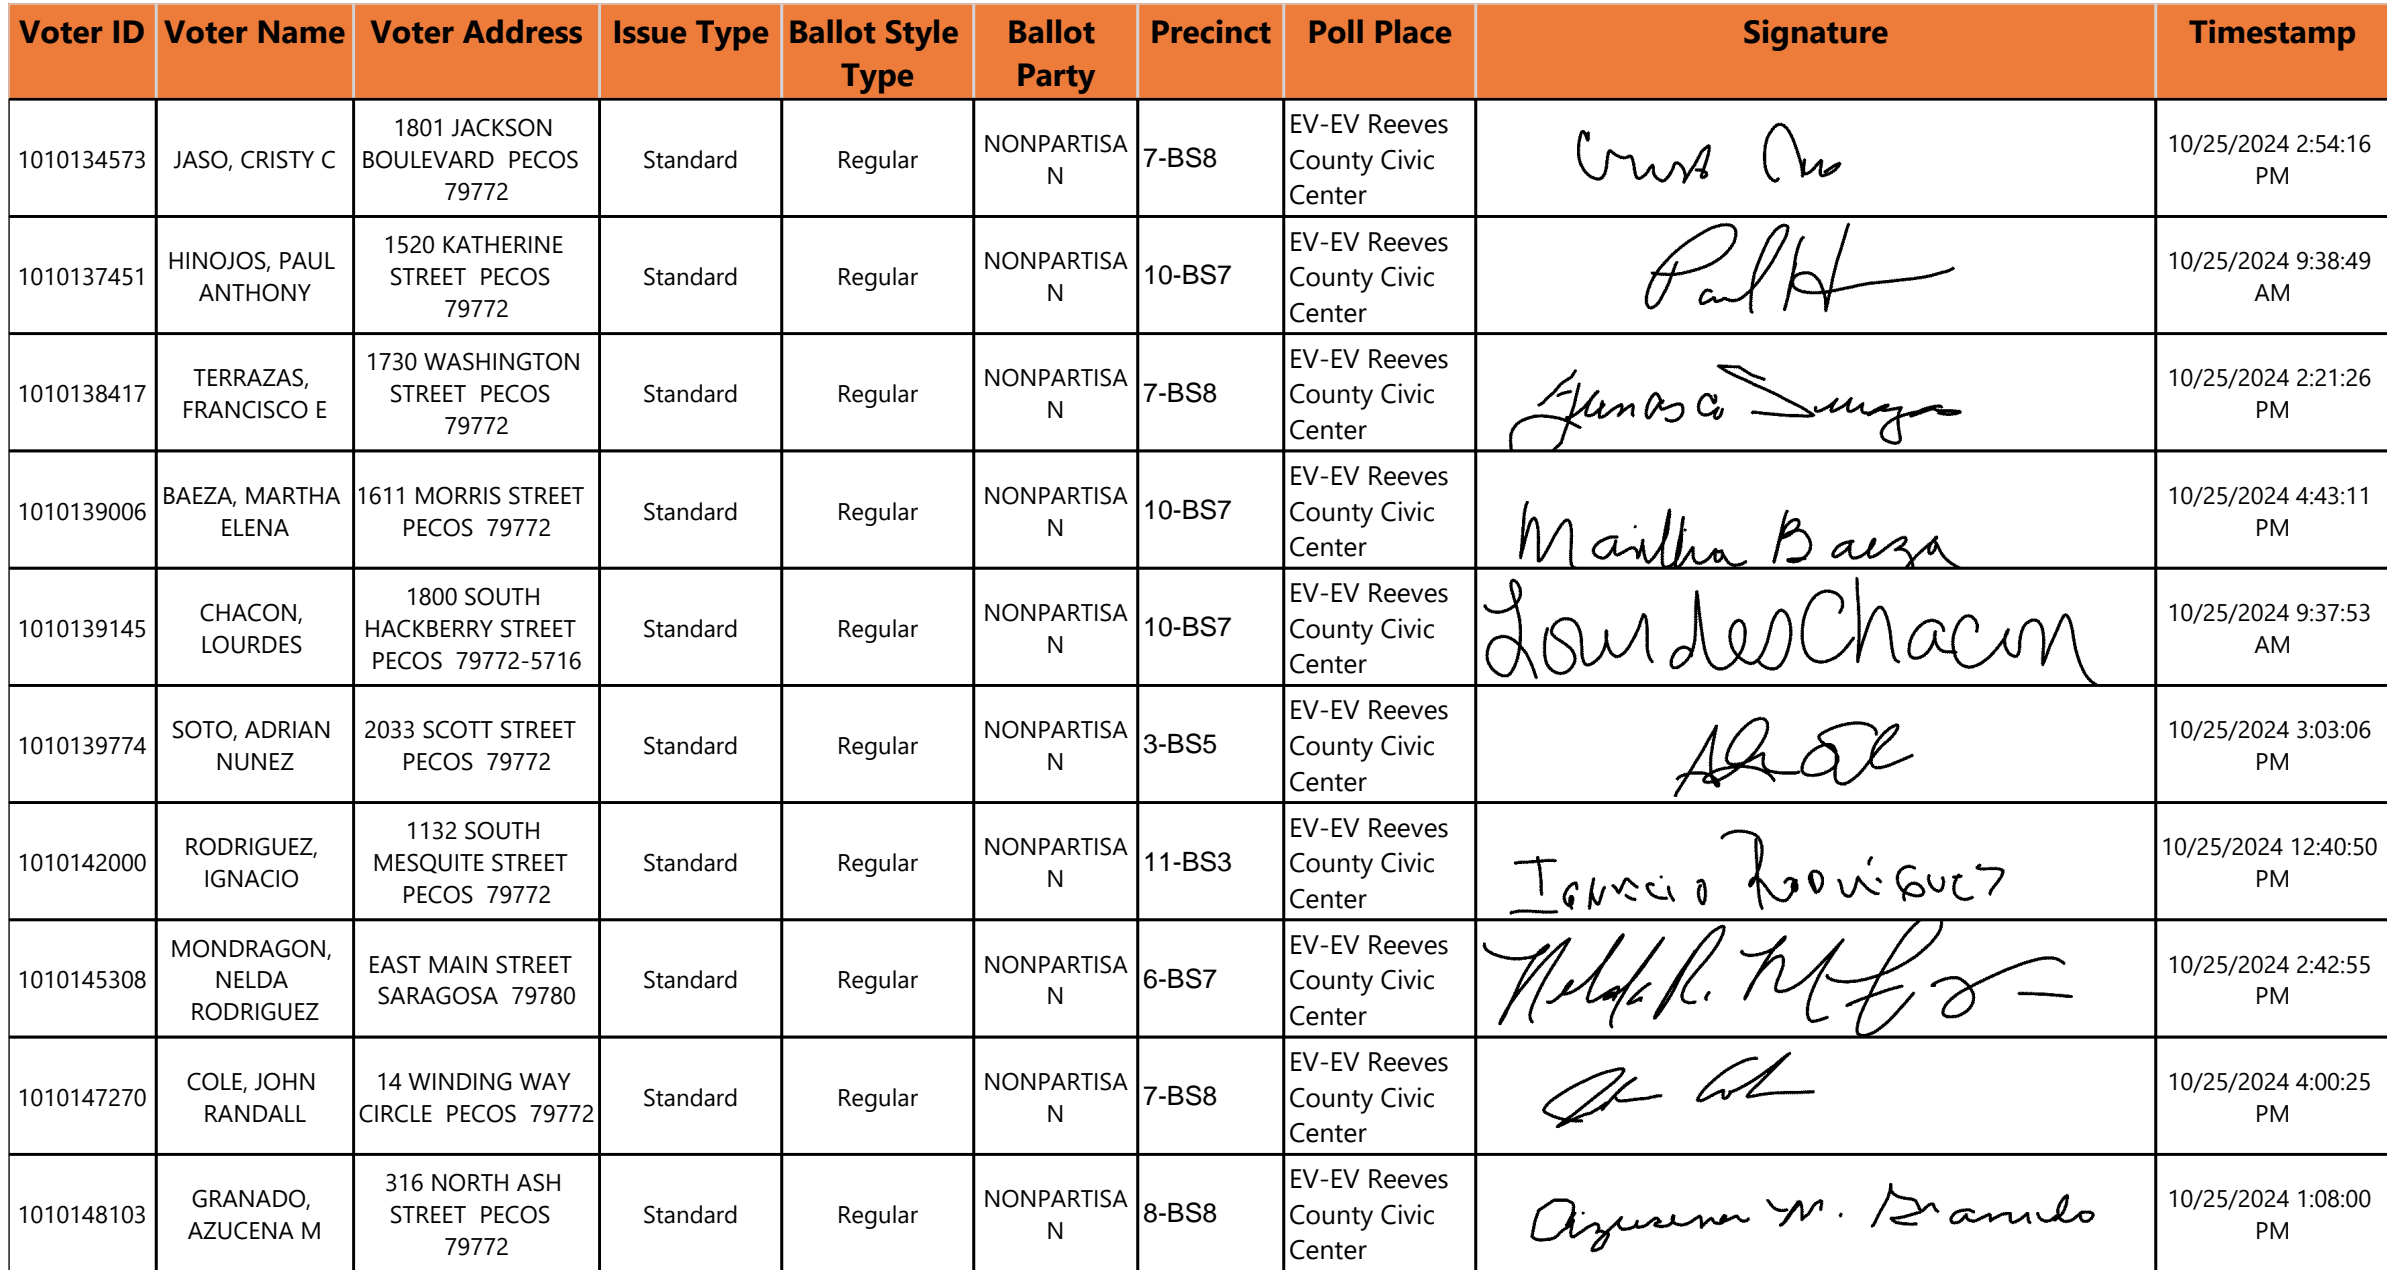 Voter ID Voter Name Voter Address Issue Type Ballot Style Type Ballot Party Precinct Poll Place Signature Timestamp
1010134573 JASO, CRISTY C 1801 JACKSON BOULEVARD PECOS 79772 Standard Regular NONPARTISAN 7-BS8 EV-EV Reeves County Civic Center 10/25/2024 2:54:16 PM
1010137451 HINOJOS, PAUL ANTHONY 1520 KATHERINE STREET PECOS 79772 Standard Regular NONPARTISAN 10-BS7 EV-EV Reeves County Civic Center Paul H 10/25/2024 9:38:49 AM
1010138417 TERRAZAS, FRANCISCO E 1730 WASHINGTON STREET PECOS 79772 Standard Regular NONPARTISAN 7-BS8 EV-EV Reeves County Civic Center 10/25/2024 2:21:26 PM
1010139006 BAEZA, MARTHA ELENA 1611 MORRIS STREET PECOS 79772 Standard Regular NONPARTISAN 10-BS7 EV-EV Reeves County Civic Center Martha Baeza 10/25/2024 4:43:11 PM
1010139145 CHACON, LOURDES 1800 SOUTH HACKBERRY STREET PECOS 79772-5716 Standard Regular NONPARTISAN 10-BS7 EV-EV Reeves County Civic Center Lourdes Chacon 10/25/2024 9:37:53 AM
1010139774 SOTO, ADRIAN NUNEZ 2033 SCOTT STREET PECOS 79772 Standard Regular NONPARTISAN 3-BS5 EV-EV Reeves County Civic Center 10/25/2024 3:03:06 PM
1010142000 RODRIGUEZ, IGNACIO 1132 SOUTH MESQUITE STREET PECOS 79772 Standard Regular NONPARTISAN 11-BS3 EV-EV Reeves County Civic Center Ignacio Rodriguez 10/25/2024 12:40:50 PM
1010145308 MONDRAGON, NELDA RODRIGUEZ EAST MAIN STREET SARAGOSA 79780 Standard Regular NONPARTISAN 6-BS7 EV-EV Reeves County Civic Center Nelda R. 10/25/2024 2:42:55 PM
1010147270 COLE, JOHN RANDALL 14 WINDING WAY CIRCLE PECOS 79772 Standard Regular NONPARTISAN 7-BS8 EV-EV Reeves County Civic Center 10/25/2024 4:00:25 PM
1010148103 GRANADO, AZUCENA M 316 NORTH ASH STREET PECOS 79772 Standard Regular NONPARTISAN 8-BS8 EV-EV Reeves County Civic Center Azucena M. Granado 10/25/2024 1:08:00 PM